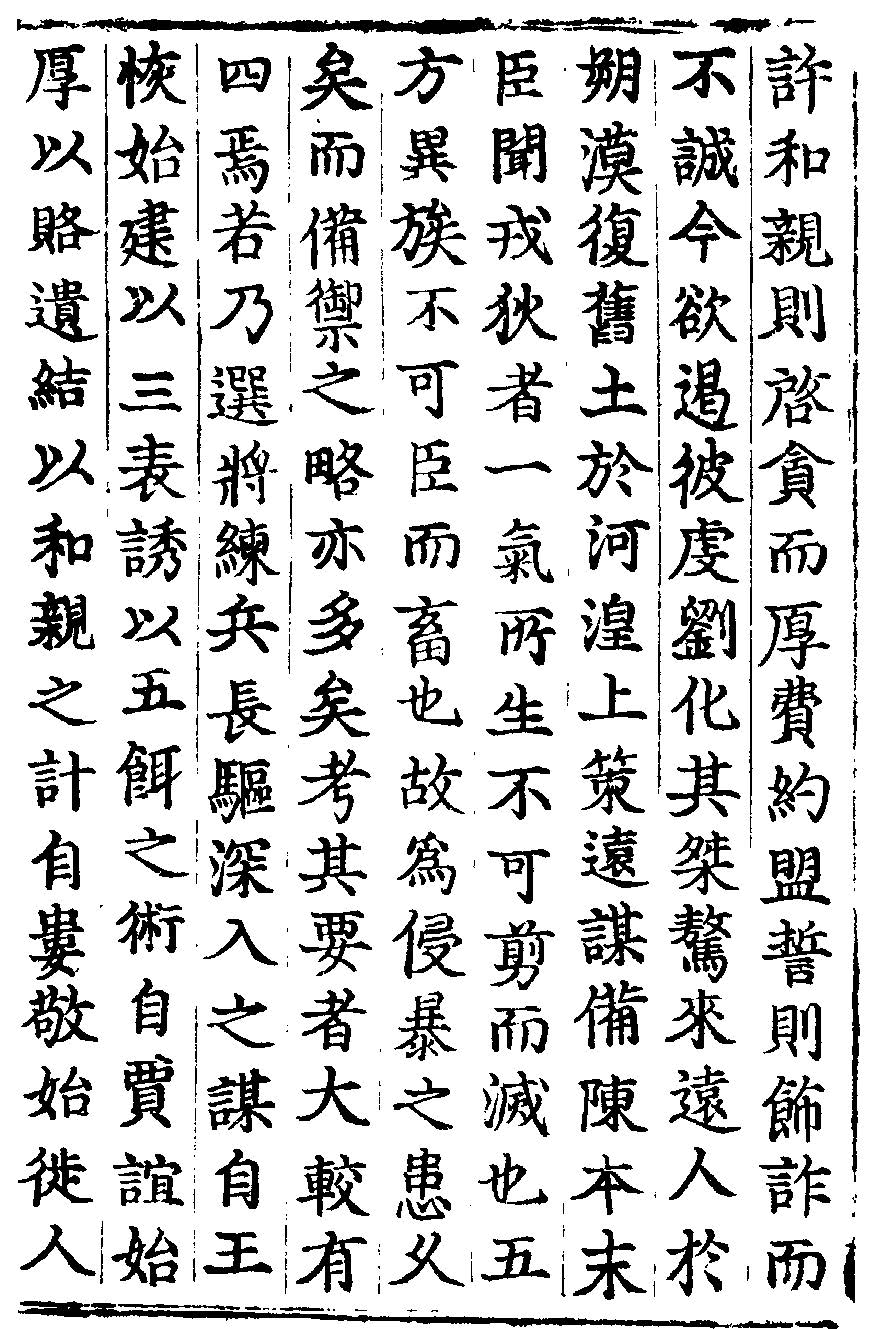 許和親則啓貪而厚費約盟誓則飾詐而
不誠今欲遏彼虔劉化其桀驁來遠人於
朔漠復舊土於河湟上策遠謀備陳本末
臣聞戎狄者一氣所生不可剪而滅也五
方異族不可臣而畜也故爲侵暴之患久
矣而備禦之略亦多矣考其要者大較有
四焉若乃選將練兵長驅深入之謀自王
恢始建以三表誘以五餌之術自賈誼始
厚以賂遺結以和親之計自婁敬始徙人